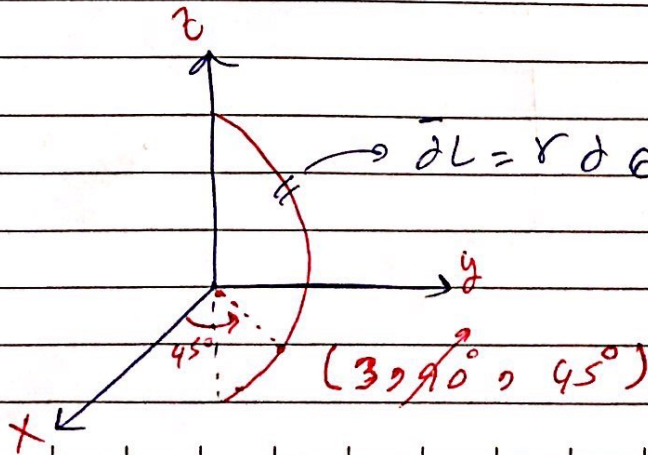 z
d̄L = r d
y
45°
(3, 90°, 45°)
X